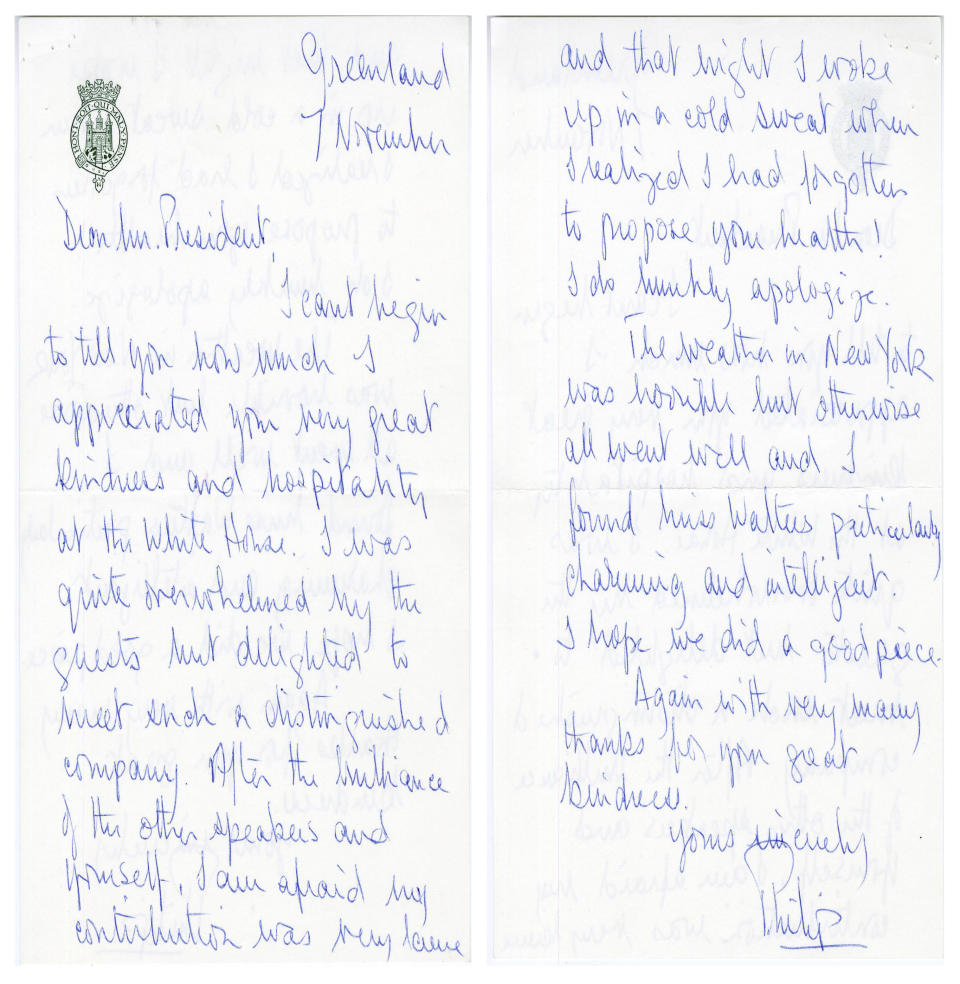 Greenland
7 November
HONI SOIT QUI MAL Y PENSE
Dear Mr. President,
I can't begin
to tell you how much I
appreciated your very great
kindness and hospitality
at the White House. I was
quite overwhelmed by the
guests but delighted to
meet such a distinguished
company. After the brilliance
of the other speakers and
yourself, I am afraid my
contribution was very lame
and that night I woke
up in a cold sweat when
I realized I had forgotten
to propose your health!
I do humbly apologize.
The weather in New York
was horrible but otherwise
all went well and I
found Miss Walters particularly
charming and intelligent.
I hope we did a good piece.
Again with very many
thanks for your great
kindness.
Yours sincerely
Philip